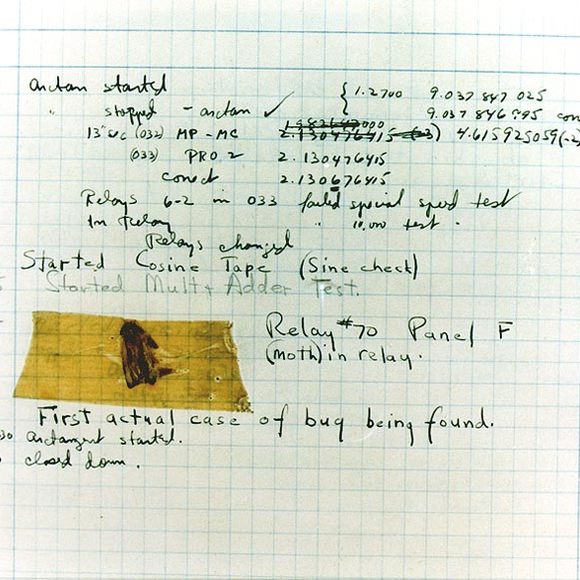 arctan started { 1.2700 9.037 847 025
" stopped - arctan ✓ 9.037 846 995 con
13"uc (032) MP - MC 1.982647000 2.130476415 (-3) 4.615925059(-2
(033) PRO 2 2.130476415
conect 2.130676415
Relays 6-2 in 033 failed special speed test
In Relay " 10,000 test .
Relays changed
Started Cosine Tape (Sine check)
Started Mult + Adder Test.
Relay #70 Panel F
(moth) in relay.
First actual case of bug being found.
arctangent started.
closed down .